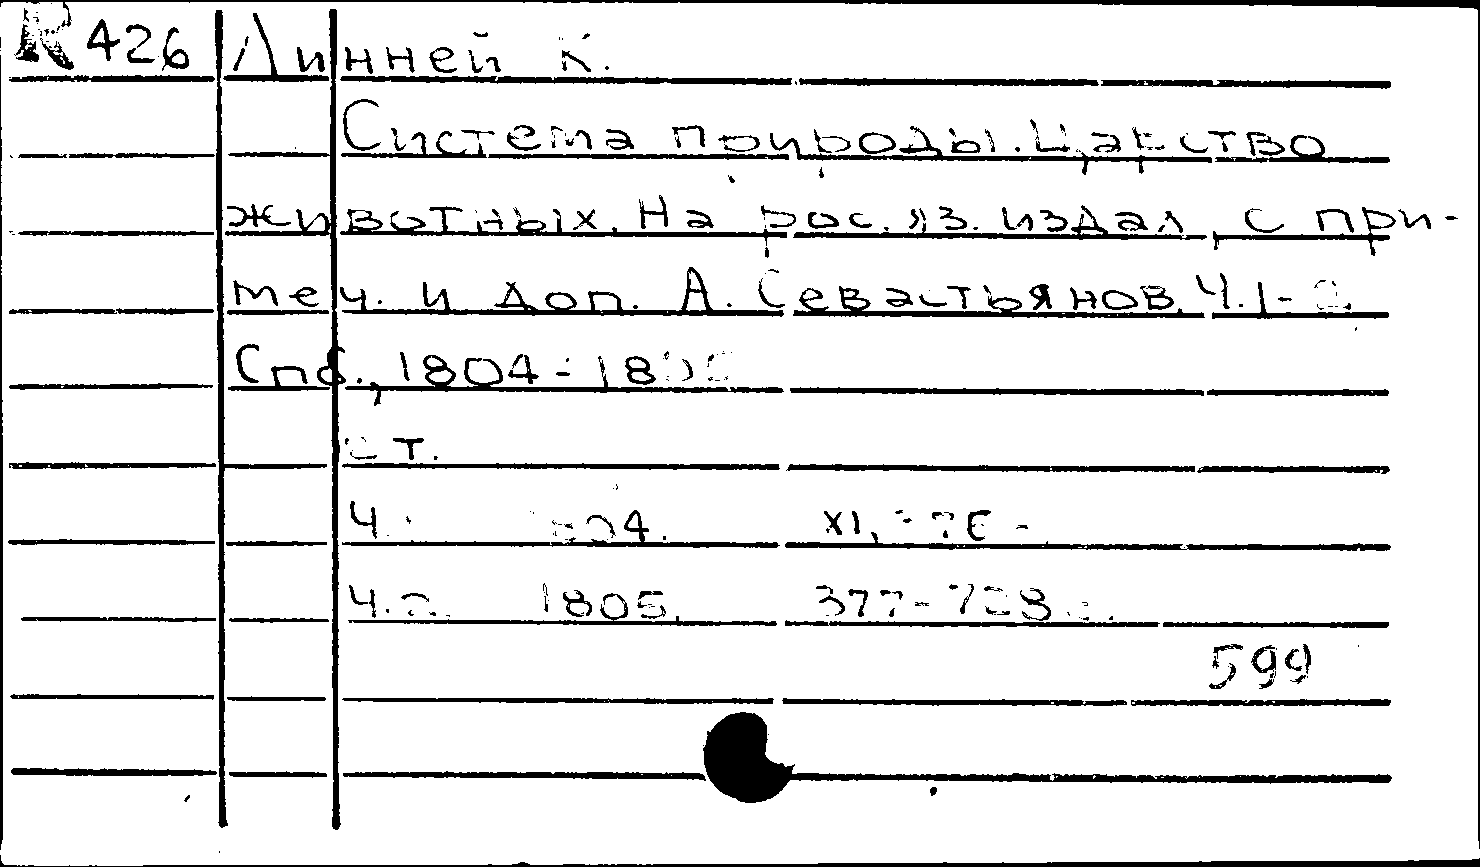 R 426 Линней К.
Система природы. Царство
животных. На рос. яз. издал, с при-
меч. и доп. А. Севастьянов. Ч. 1-2
Спб., 1804-1805
2 т.
Ч. 1804. XI, 376
Ч. 2. 1805. 377-728 с.
599